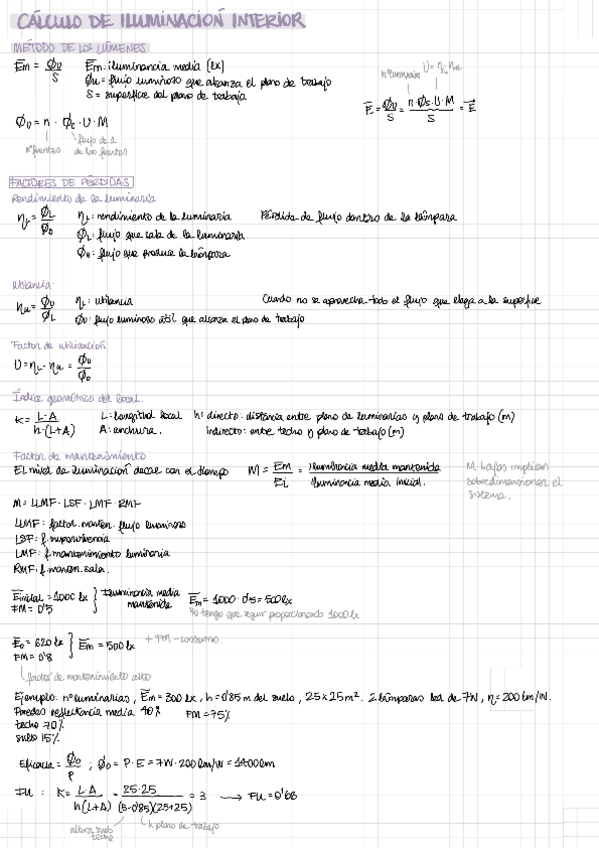 CÁLCULO DE ILUMINACIÓN INTERIOR
MÉTODO DE LOS LÚMENES
Em = Φu / S
Em: iluminancia media (lx)
Φu = flujo luminoso que alcanza el plano de trabajo
S = superficie del plano de trabajo
Φu = n · Φc · U · M
nº fuentes
flujo de 1 de las fuentes
E = Φu / S = n · Φc · U · M / S = E
FACTORES DE PÉRDIDAS
Rendimiento de la luminaria
ηL = ΦL / Φo
ηL: rendimiento de la luminaria
Pérdida de flujo dentro de la lámpara
ΦL: flujo que sale de la luminaria
Φo: flujo que produce la lámpara
Utilancia
ηu = Φu / ΦL
ηL: utilancia
Cuando no se aprovecha todo el flujo que llega a la superficie
Φu: flujo luminoso útil que alcanza el plano de trabajo
Factor de utilización
U = ηL · ηu = Φu / Φo
Índice geométrico del local.
K = L·A / h·(L+A)
L: longitud local
h: directo: distancia entre plano de luminarias y plano de trabajo (m)
A: anchura.
indirecto: entre techo y plano de trabajo (m)
Factor de mantenimiento
El nivel de iluminación decae con el tiempo
M = Em / Ei = iluminancia media mantenida / iluminancia media inicial.
M bajos implican
sobredimensionar el
sistema.
M = LLMF · LSF · LMF · RMF
LLMF: factor manten. flujo luminoso
LSF: f. supervivencia
LMF: f. mantenimiento luminaria
RMF: f. manten. sala.
Einicial = 1000 lx
FM = 0'5
Iluminancia media
mantenida
Em = 1000 · 0'5 = 500lx
Yo tengo que seguir proporcionando 1000 lx
Eo = 620 lx
FM = 0'8
Em = 500 lx
+ FM - consumo
factor de mantenimiento alto
Ejemplo: nº luminarias, Em = 300 lx, h = 0'85 m del suelo, 25x25m². 2 lámparas led de 7W, η = 200 lm/W.
Paredes reflectancia media 40%
FM = 75%
techo 70%
suelo 15%
Eficacia = Φo / P ; Φo = P · E = 7W · 200 lm/W = 1400lm
FU : K = L·A / h(L+A) = 25·25 / (5-0'85)(25+25) = 3 → FU = 0'66
techo
h plano de trabajo